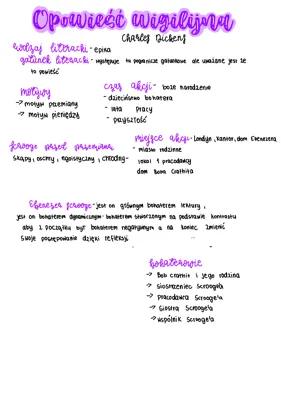 Opowieść wigilijna
Charles Dickens
rodzaj literacki - epika
gatunek literacki - występuje to pogranicze gatunkowe ale uważane jest że
to powieść
motywy
→ motyw przemiany
→ motyw pieniędzy
czas akcji - boże narodzenie
- dzieciństwo bohatera
- lata pracy
- przyszłość
scrooge przed przemianą
skąpy, oschły, egoistyczny, chłodny
miejsce akcji - Londyn, kantor, dom Ebenezera
- miasto rodzinne
lokal 1 pracodawcy
dom Boba Cratchita
Ebenezer scrooge - jest on głównym bohaterem lektury,
jest on bohaterem dynamicznym - bohaterem stworzonym na podstawie kontrastu
aby z początku był bohaterem negatywnym a na koniec zmienić
swoje postępowanie dzięki refleksji
bohaterowie
→ Bob Cratchit i jego rodzina
→ siostrzeniec Scrooge'a
→ pracodawca Scrooge'a
→ siostra Scrooge'a
→ wspólnik Scrooge'a